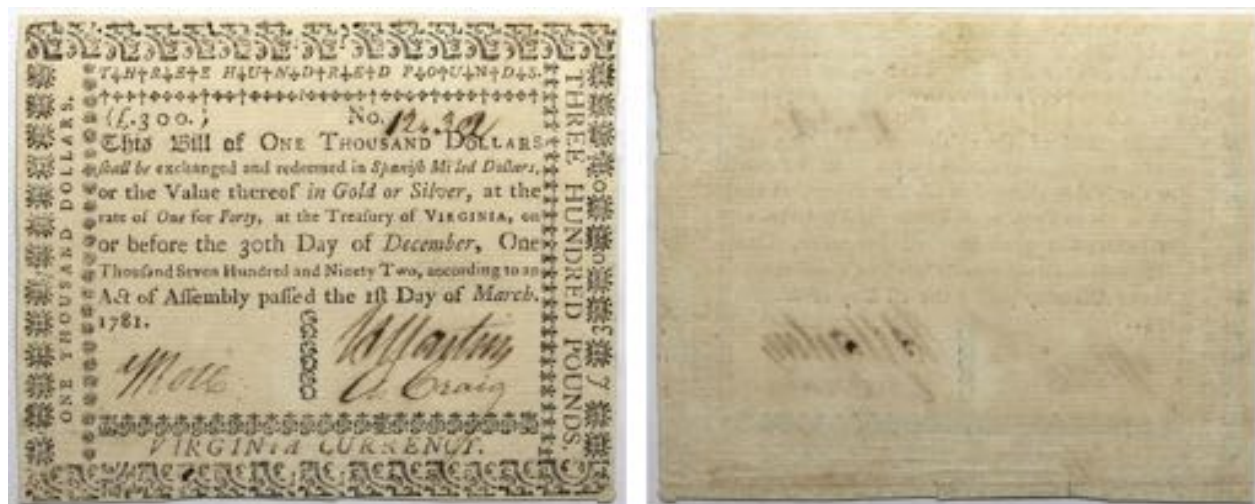 THREE HUNDRED POUNDS.
(£.300.) No.
This Bill of ONE THOUSAND DOLLARS
shall be exchanged and redeemed in Spanish Milled Dollars,
or the Value thereof in Gold or Silver, at the
rate of One for Forty, at the Treasury of VIRGINIA, on
or before the 30th Day of December, One
Thousand Seven Hundred and Ninety Two, according to an
Act of Assembly passed the 1st Day of March.
1781.
Craig
VIRGINIA CURRENCY.
ONE THOUSAND DOLLARS.
THREE HUNDRED POUNDS.